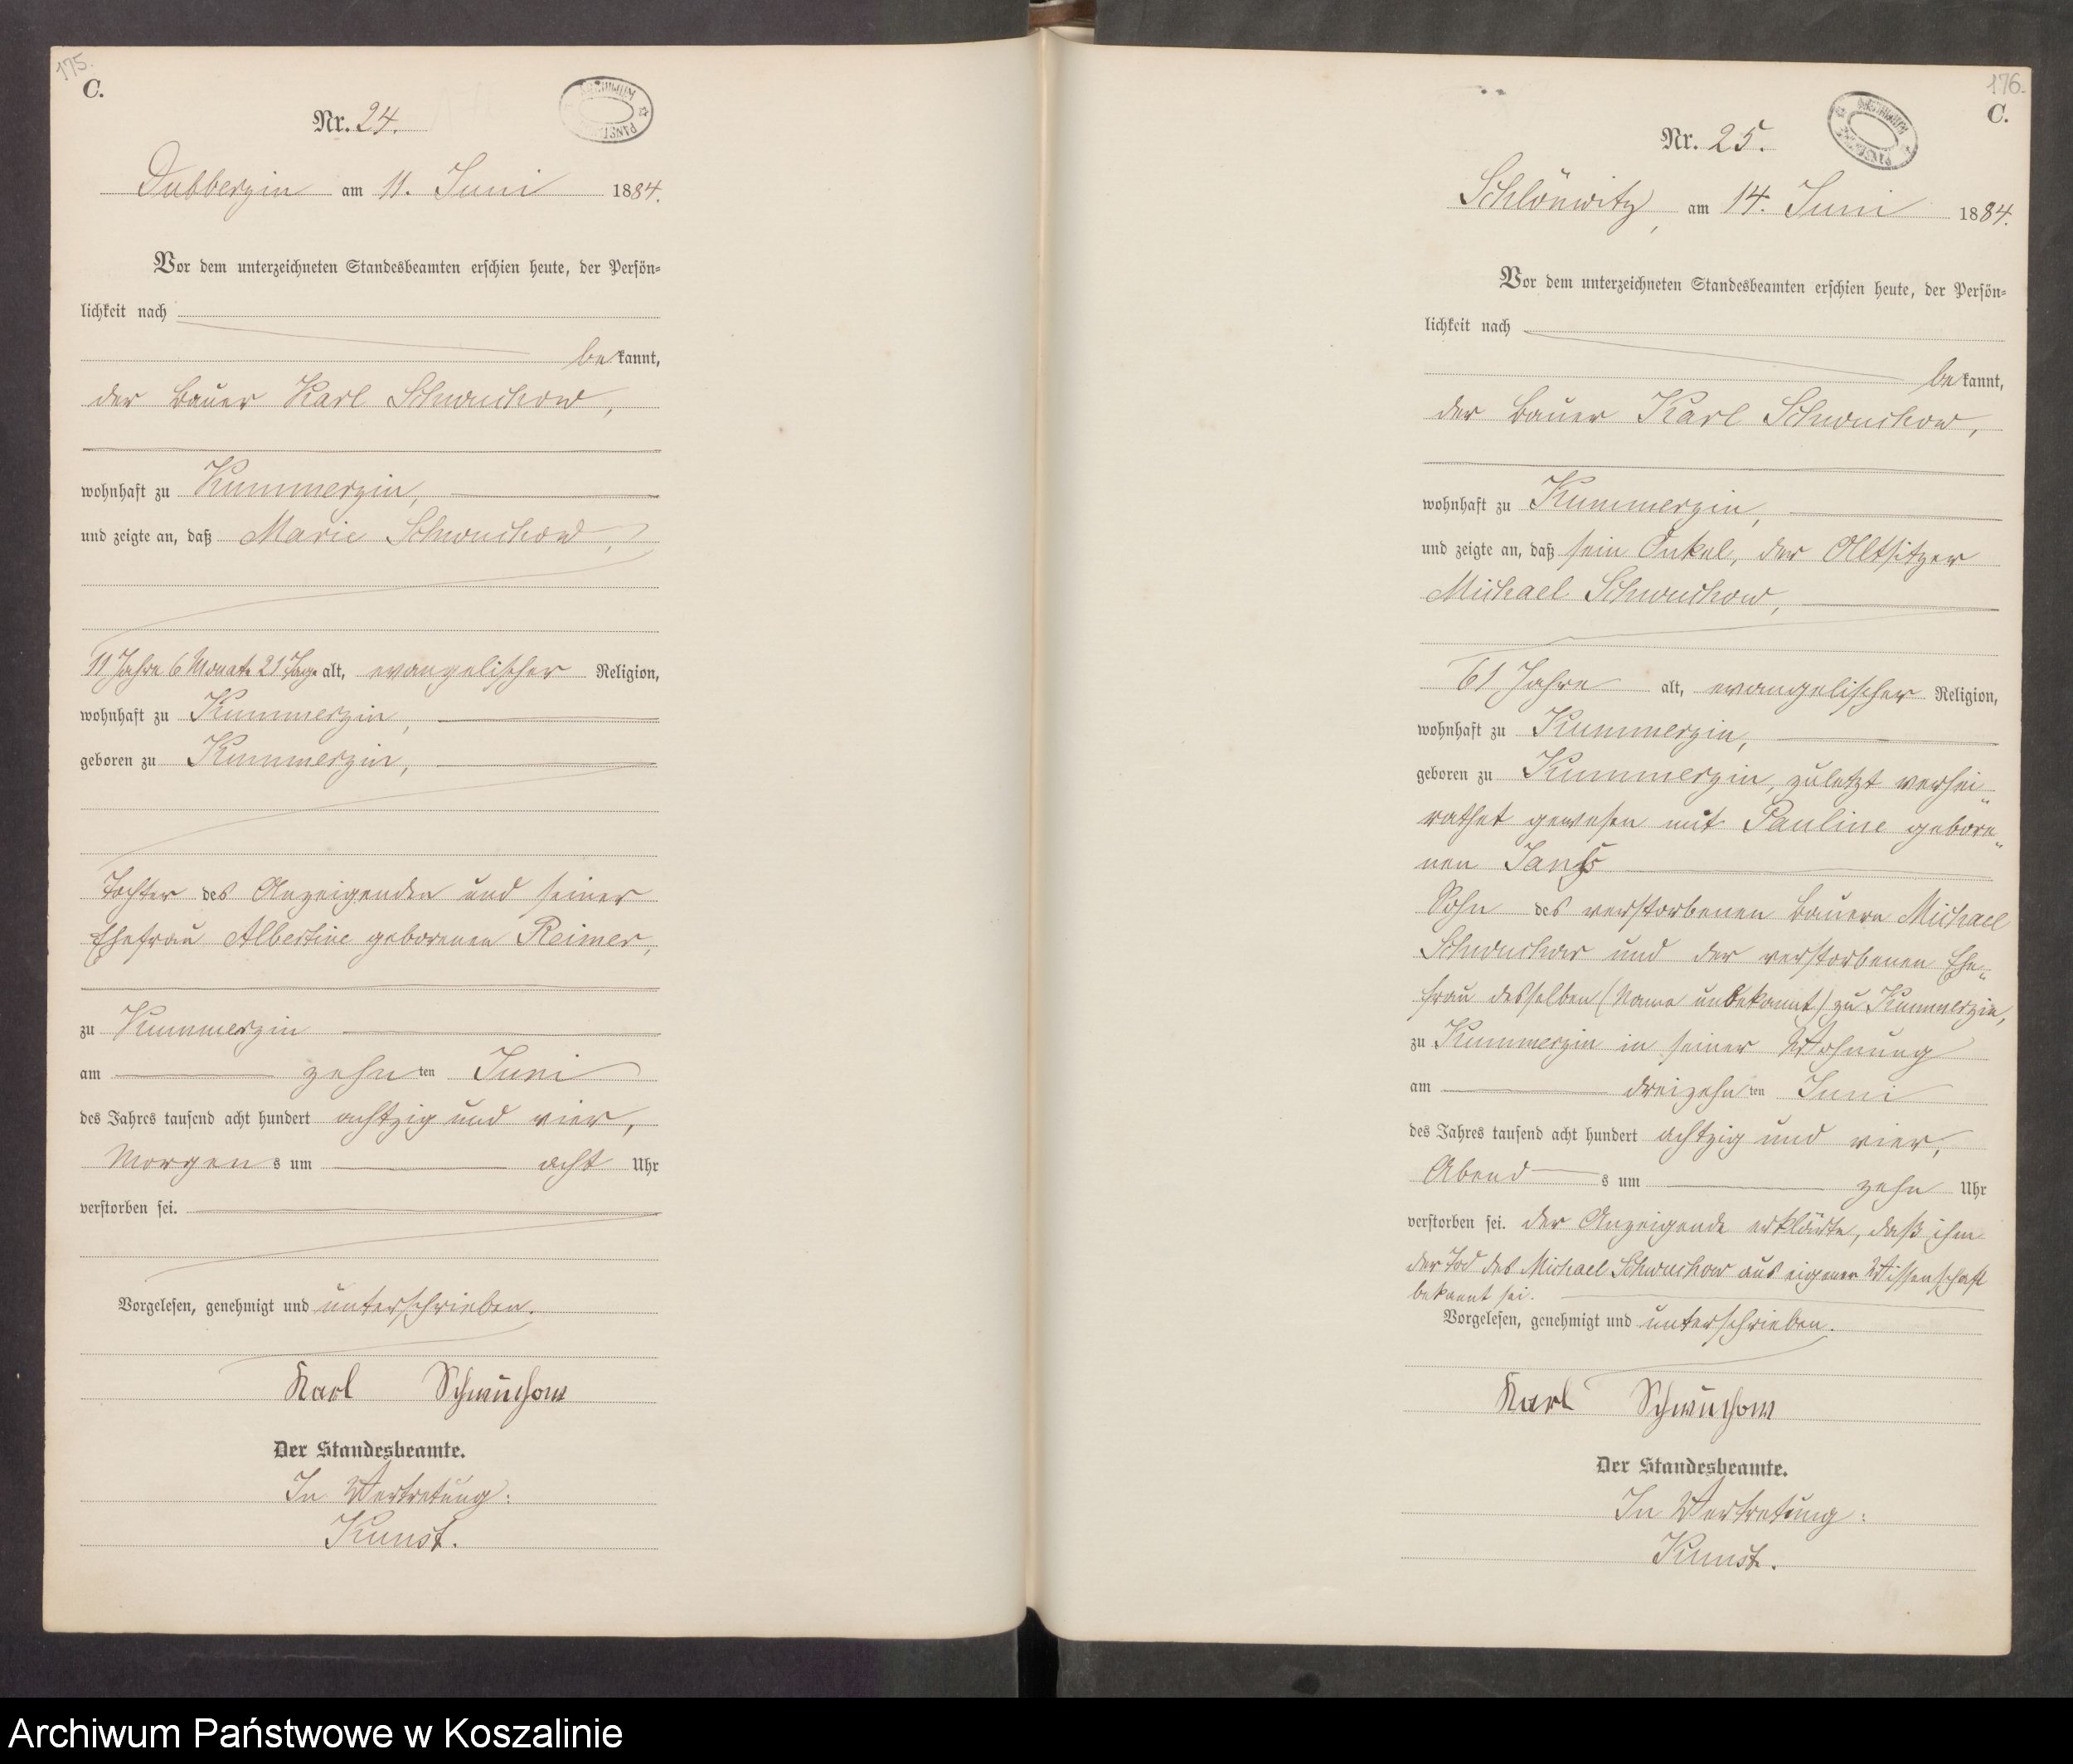 175.
C.
Nr. 24.
Dubberzin am 11. Juni 1884.
Vor dem unterzeichneten Standesbeamten erschien heute, der Persön-
lichkeit nach
bekannt,
der Bauer Karl Schwuchow,
wohnhaft zu Kummerzin,
und zeigte an, daß Marie Schwuchow,
11 Jahre 6 Monate 21 Tage alt, evangelischer Religion,
wohnhaft zu Kummerzin,
geboren zu Kummerzin,
Tochter des Anzeigenden und seiner
Ehefrau Albertine geborenen Reimer,
zu Kummerzin
am zehnten Juni
des Jahres tausend acht hundert achtzig und vier,
Morgens um acht Uhr
verstorben sei.
Vorgelesen, genehmigt und unterschrieben.
Karl Schwuchow
Der Standesbeamte.
In Vertretung:
Kunst.
176.
C.
Nr. 25.
Schlönwitz, am 14. Juni 1884.
Vor dem unterzeichneten Standesbeamten erschien heute, der Persön-
lichkeit nach
bekannt,
der Bauer Karl Schwuchow,
wohnhaft zu Kummerzin,
und zeigte an, daß sein Onkel, der Altsitzer
Michael Schwuchow,
61 Jahre alt, evangelischer Religion,
wohnhaft zu Kummerzin,
geboren zu Kummerzin, zuletzt verhei-
rathet gewesen mit Pauline gebore-
nen
Sohn des verstorbenen Bauern Michael
Schwuchow und der verstorbenen Ehe-
frau desselben (Name unbekannt) zu Kummerzin,
zu Kummerzin in seiner Wohnung
am dreizehnten Juni
des Jahres tausend acht hundert achtzig und vier,
Abends um zehn Uhr
verstorben sei. Der Anzeigende erklärte, daß ihm
der Tod des Michael Schwuchow aus eigener Wissenschaft
bekannt sei.
Vorgelesen, genehmigt und unterschrieben.
Karl Schwuchow
Der Standesbeamte.
In Vertretung:
Kunst.
Archiwum Państwowe w Koszalinie